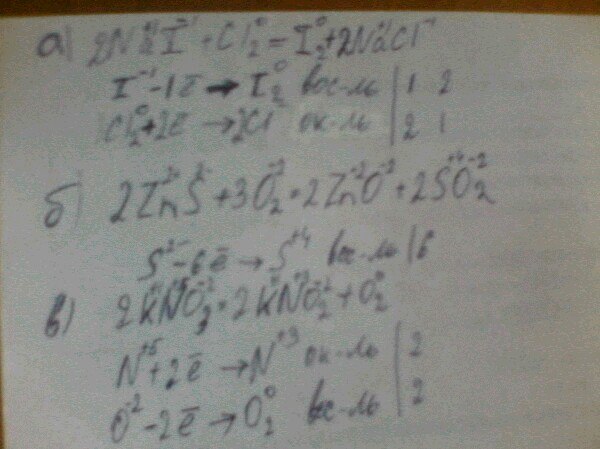 а) 2Na⁺¹I⁻¹ + Cl₂⁰ = I₂⁰ + 2Na⁺Cl⁻
I⁻¹ - 1ē → I₂⁰ вос-ль | 1 2
Cl₂⁰ + 2ē → 2Cl⁻ ок-ль | 2 1
б) 2Zn⁺²S⁻² + 3O₂⁰ = 2Zn⁺²O⁻² + 2S⁺⁴O₂⁻²
S²⁻ - 6ē → S⁺⁴ вос-ль | 6
в) 2K⁺¹N⁺⁵O₃⁻² = 2K⁺¹N⁺³O₂⁻² + O₂⁰
N⁺⁵ + 2ē → N⁺³ ок-ль | 2
O⁻² - 2ē → O₂⁰ вос-ль | 2